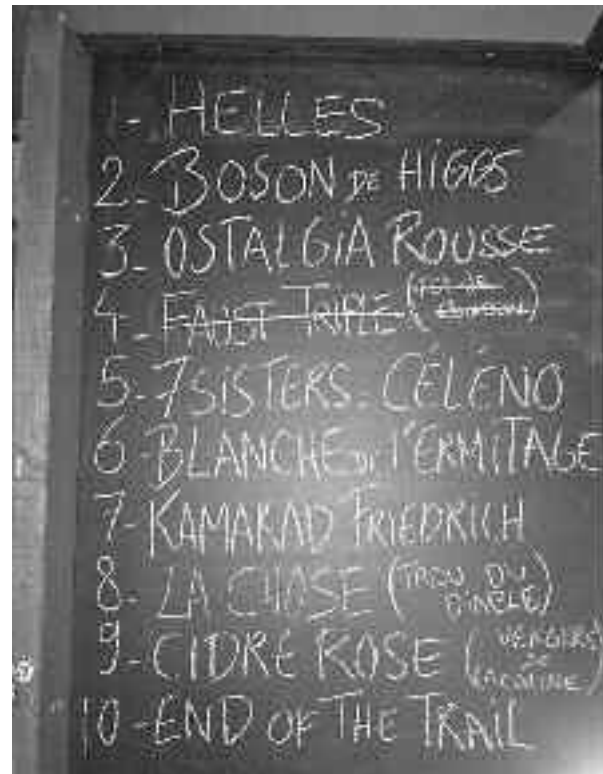 1- HELLES
2- BOSON DE HIGGS
3- OSTALGIA ROUSSE
4- FAUST TRIPLE
5- 7 SISTERS - CÉLÉNO
6- BLANCHE DE L'ERMITAGE
7- KAMARAD FRIEDRICH
8- LA CHOSE (TROU DU DIABLE)
9- CIDRE ROSE (VERGERS DE
10- END OF THE TRAIL